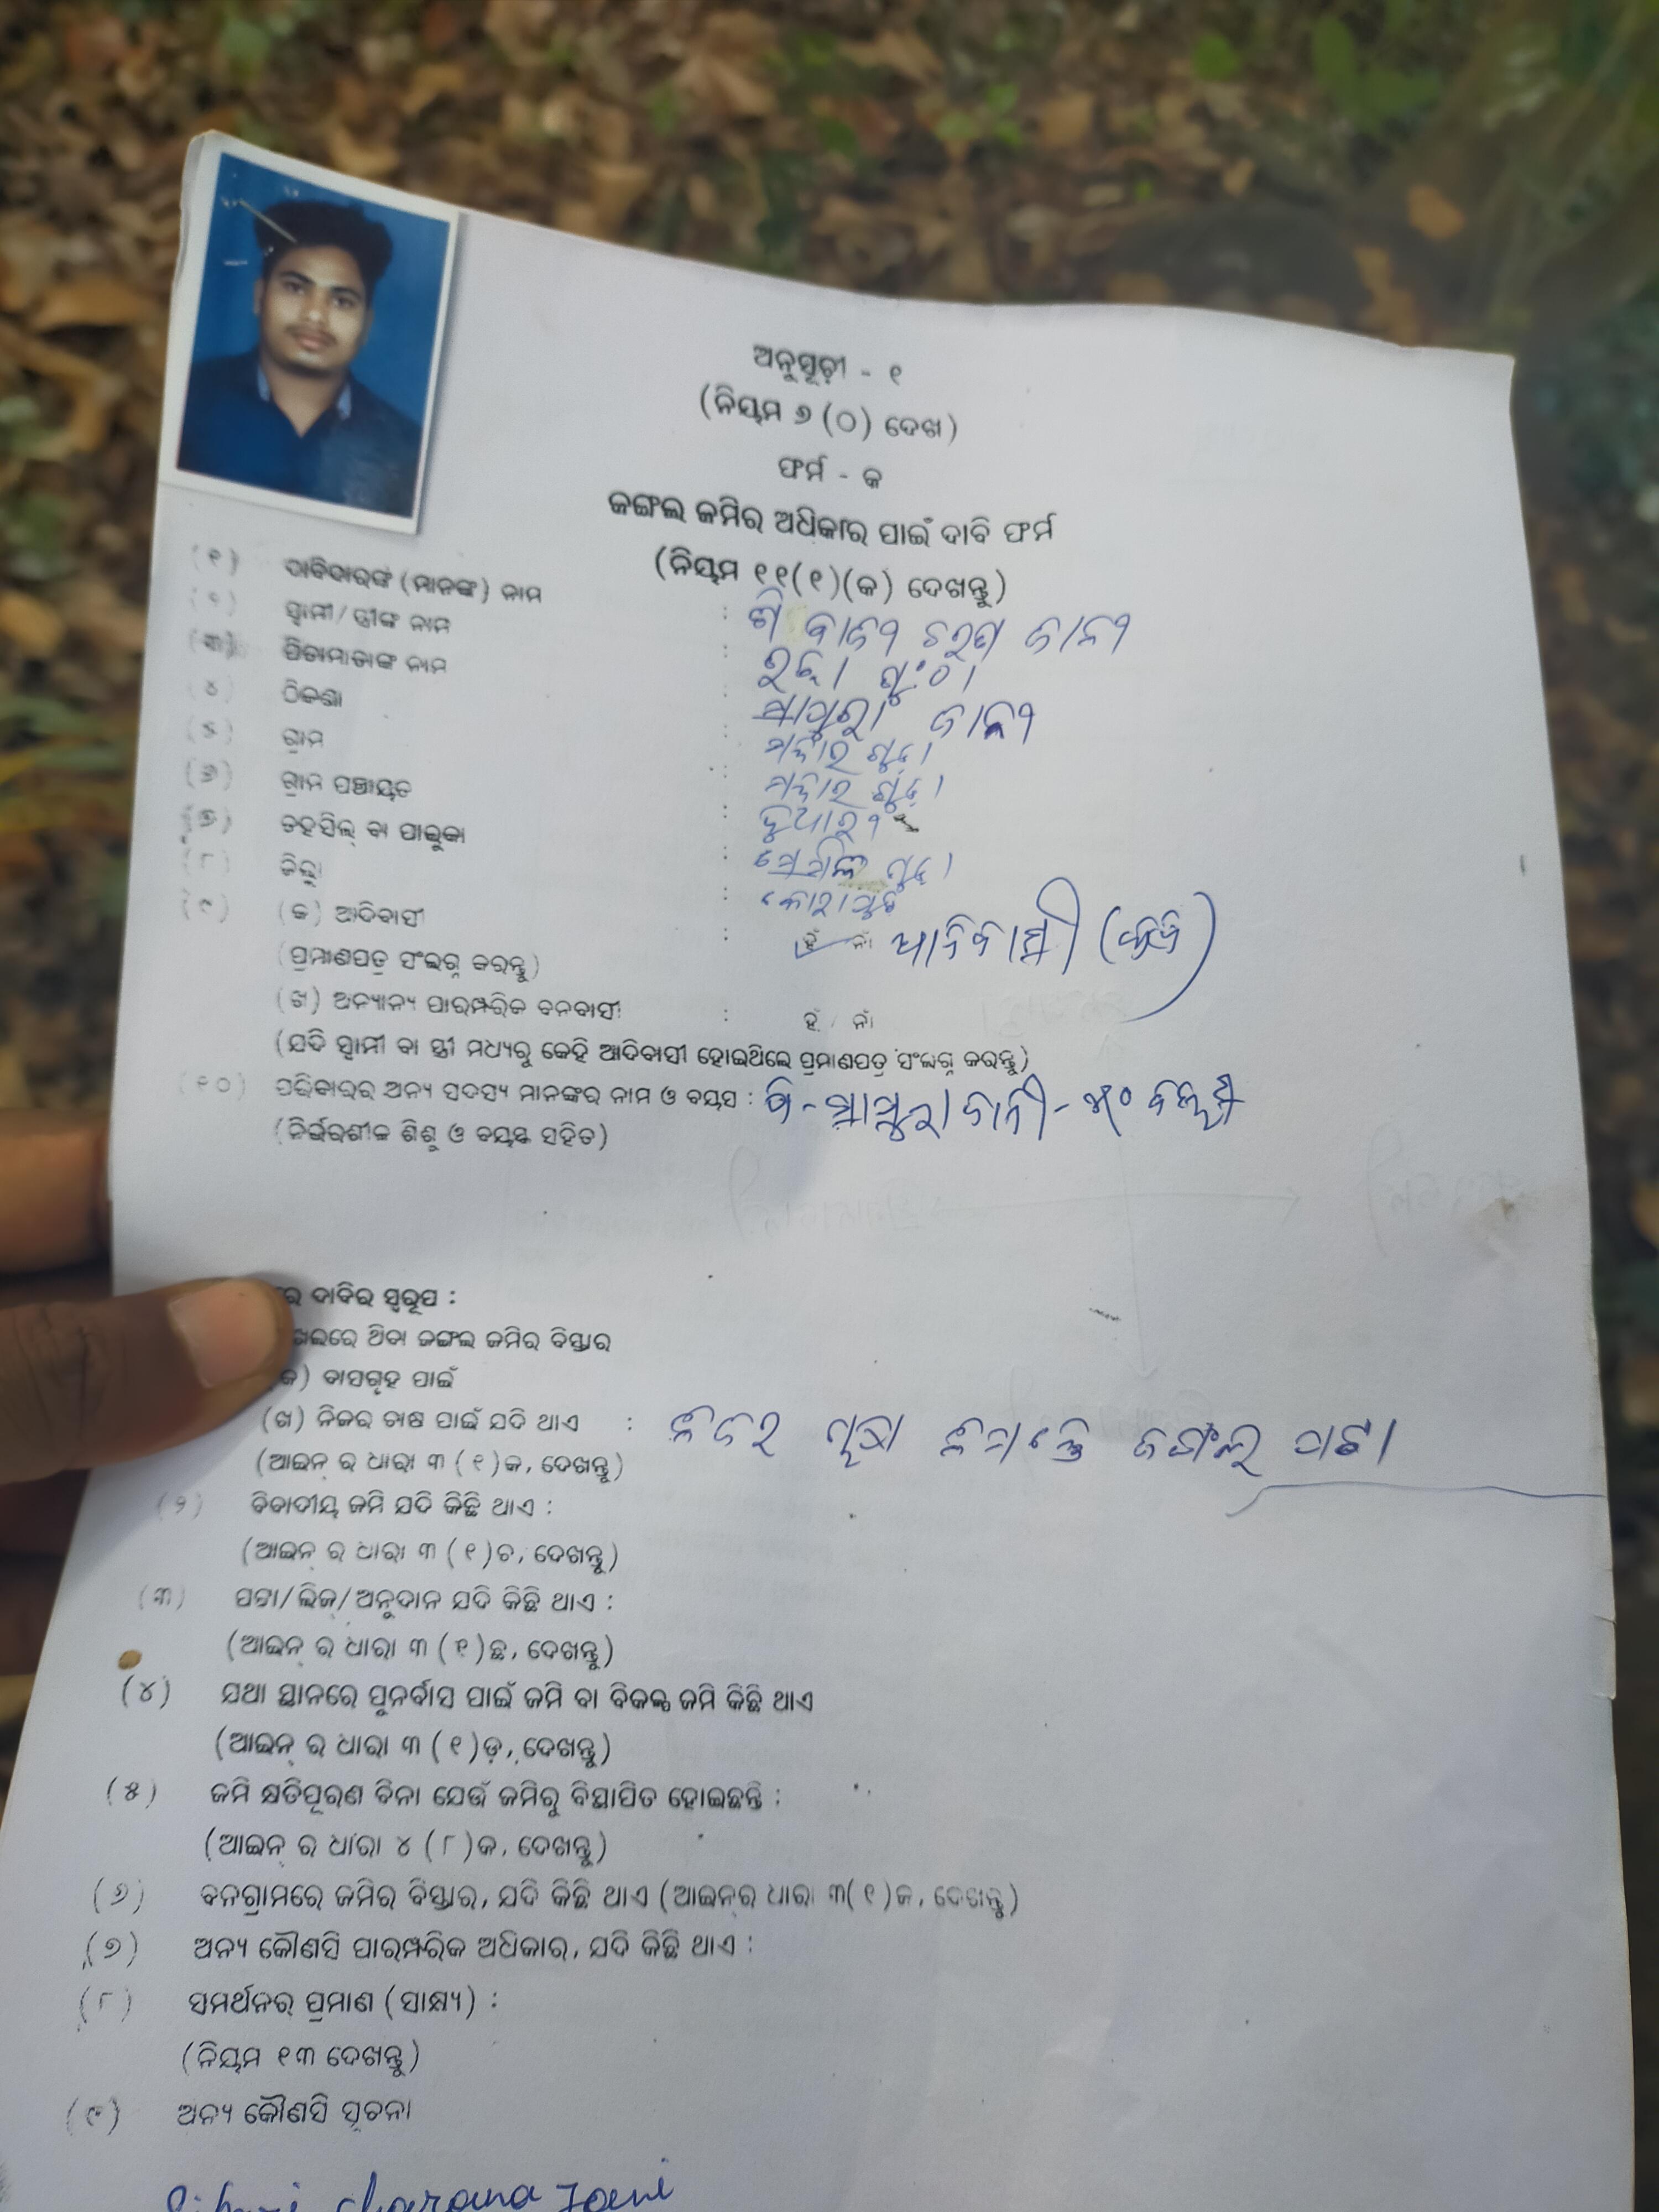 ଅନୁସୂଚୀ - ୧
(ନିୟମ ୬ (୦) ଦେଖ)
ଫର୍ମ - କ
ଜଙ୍ଗଲ ଜମିର ଅଧିକାର ପାଇଁ ଦାବି ଫର୍ମ
(ନିୟମ ୧୧(୧)(କ) ଦେଖନ୍ତୁ)
(୧) ଦାବିଦାରଙ୍କ (ମାନଙ୍କ) ନାମ : ଚରଣ ଜାନୀ
(୨) ସ୍ୱାମୀ/ସ୍ତ୍ରୀଙ୍କ ନାମ :
(୩) ପିତାମାତାଙ୍କ ନାମ : ଜାନୀ
(୪) ଠିକଣା :
(୫) ଗ୍ରାମ :
(୬) ଗ୍ରାମ ପଞ୍ଚାୟତ :
(୭) ତହସିଲ୍ ବା ତାଲୁକା :
(୮) ଜିଲ୍ଲା : କୋରାପୁଟ
(୯) (କ) ଆଦିବାସୀ : ହଁ ନାଁ ଆଦିବାସୀ
(ପ୍ରମାଣପତ୍ର ସଂଲଗ୍ନ କରନ୍ତୁ)
(ଖ) ଅନ୍ୟାନ୍ୟ ପାରମ୍ପରିକ ବନବାସୀ : ହଁ / ନାଁ
(ଯଦି ସ୍ୱାମୀ ବା ସ୍ତ୍ରୀ ମଧ୍ୟରୁ କେହି ଆଦିବାସୀ ହୋଇଥିଲେ ପ୍ରମାଣପତ୍ର ସଂଲଗ୍ନ କରନ୍ତୁ)
(୧୦) ପରିବାରର ଅନ୍ୟ ସଦସ୍ୟ ମାନଙ୍କର ନାମ ଓ ବୟସ :
(ନିର୍ଭରଶୀଳ ଶିଶୁ ଓ ବୟସ୍କ ସହିତ)
ରେ ଦାବିର ସ୍ୱରୂପ :
ଖଲରେ ଥିବା ଜଙ୍ଗଲ ଜମିର ବିସ୍ତାର
କ) ବାସଗୃହ ପାଇଁ
(ଖ) ନିଜର ଚାଷ ପାଇଁ ଯଦି ଥାଏ : ନିଜର ନିମନ୍ତେ ଜଙ୍ଗଲ ପଟା
(ଆଇନ୍ ର ଧାରା ୩ (୧)କ, ଦେଖନ୍ତୁ)
(୨) ବିବାଦୀୟ ଜମି ଯଦି କିଛି ଥାଏ :
(ଆଇନ୍ ର ଧାରା ୩ (୧)ଚ, ଦେଖନ୍ତୁ)
(୩) ପଟା/ଲିଜ୍/ଅନୁଦାନ ଯଦି କିଛି ଥାଏ :
(ଆଇନ୍ ର ଧାରା ୩ (୧)ଛ, ଦେଖନ୍ତୁ)
(୪) ଯଥା ସ୍ଥାନରେ ପୁନର୍ବାସ ପାଇଁ ଜମି ବା ବିକଳ୍ପ ଜମି କିଛି ଥାଏ
(ଆଇନ୍ ର ଧାରା ୩ (୧)ଡ଼, ଦେଖନ୍ତୁ)
(୫) ଜମି କ୍ଷତିପୂରଣ ବିନା ଯେଉଁ ଜମିରୁ ବିସ୍ଥାପିତ ହୋଇଛନ୍ତି :
(ଆଇନ୍ ର ଧାରା ୪ (୮)କ, ଦେଖନ୍ତୁ)
(୬) ବନଗ୍ରାମରେ ଜମିର ବିସ୍ତାର, ଯଦି କିଛି ଥାଏ (ଆଇନ୍‌ର ଧାରା ୩(୧)ଜ, ଦେଖନ୍ତୁ)
(୭) ଅନ୍ୟ କୌଣସି ପାରମ୍ପରିକ ଅଧିକାର, ଯଦି କିଛି ଥାଏ :
(୮) ସମର୍ଥନର୍ ପ୍ରମାଣ (ସାକ୍ଷ୍ୟ) :
(ନିୟମ ୧୩ ଦେଖନ୍ତୁ)
(୯) ଅନ୍ୟ କୌଣସି ସୂଚନା
charana Jani